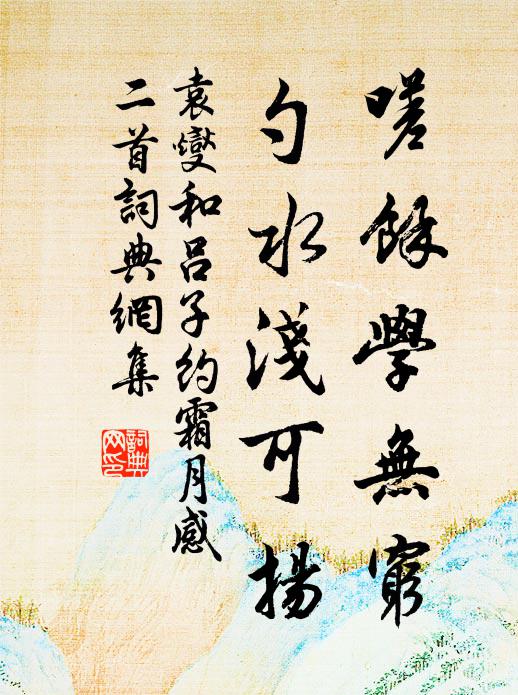 嗟餘學無窮
勺水淺可揚
袁燮和呂子約霜月感
二首詞典網集
詞典网印